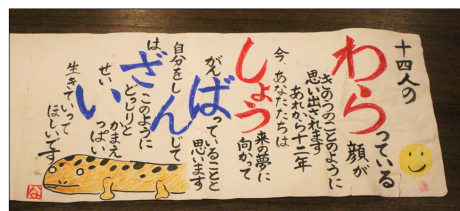 十四人の
わらっている
顔が
きのうのことのように
思い出されます
あれから十二年
今、あなたたちは
しょう来の夢に
向かって
がんばっていることと
思います
自分をしんじて
は
ざ
このように
どっしりと
かまえ
せいいっぱい
生きていって
ほしいです